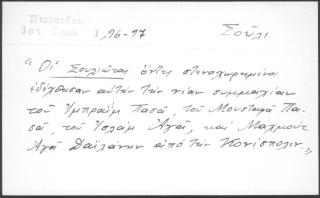 Περραιβού
Ιστ. Σουλ Ι, 96-97
Σούλι
"Οἱ Σουλιῶται ὄντες στενοχωρημένοι
ἐδέχθησαν αὐτὴν τὴν νέαν συμμαχίαν
τοῦ Ἰμπραὴμ Πασᾶ, τοῦ Μουσταφᾶ Πα-
σᾶ, τοῦ Ἰσλὰμ Ἀγᾶ, καὶ Μαχμοὺτ
Ἀγᾶ Δαΐλάνη ἀπὸ τὴν Κονίσπολιν.„